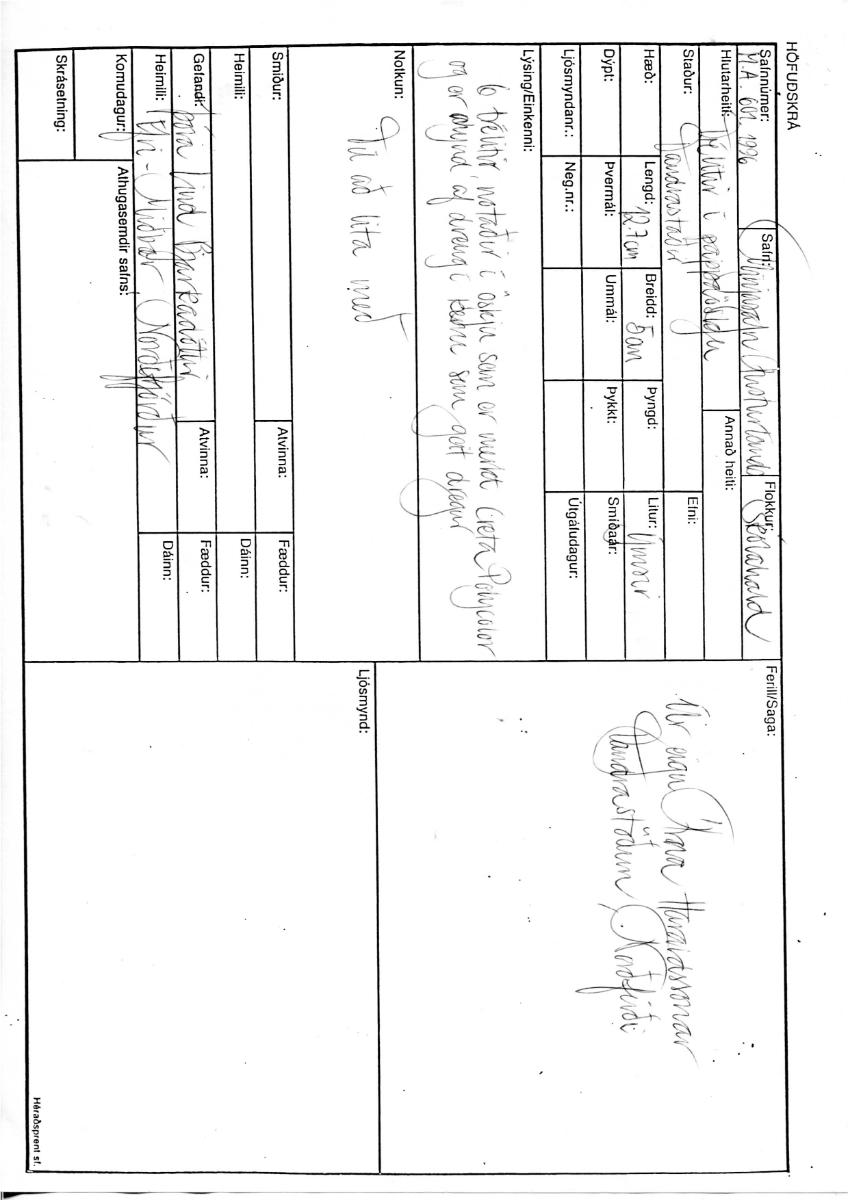 HÖFUÐSKRÁ
Safnnúmer: M.A. 601. 1996
Safn: Minjasafn Austurlands
Flokkur: Skólahald
Hlutarheiti: Trélitir í pappaöskju
Annað heiti:
Staður: Tandrastaðir
Efni:
Hæð:
Lengd: 12.7 cm
Breidd: 5 cm
Þyngd:
Litur: Ýmsir
Dýpt:
Þvermál:
Ummál:
Þykkt:
Smíðaár:
Ljósmyndanr.:
Neg.nr.:
Útgáfudagur:
Lýsing/Einkenni:
6 trélitir notaðir í öskju sem er merkt Creta Polycolor
og er mynd af dreng í sem gát dregur
Notkun:
Til að lita með
Smiður:
Atvinna:
Fæddur:
Heimili:
Dáinn:
Gefandi: Þóra Lind Bjarkadóttir
Atvinna:
Fæddur:
Heimili: Efri-Miðbær Norðfjörður
Dáinn:
Komudagur:
Athugasemdir safns:
Skrásetning:
Ferill/Saga:
Úr eigu Árna Haraldssonar
Tandrastöðum, Norðfirði
Ljósmynd:
Héraðsprent sf.